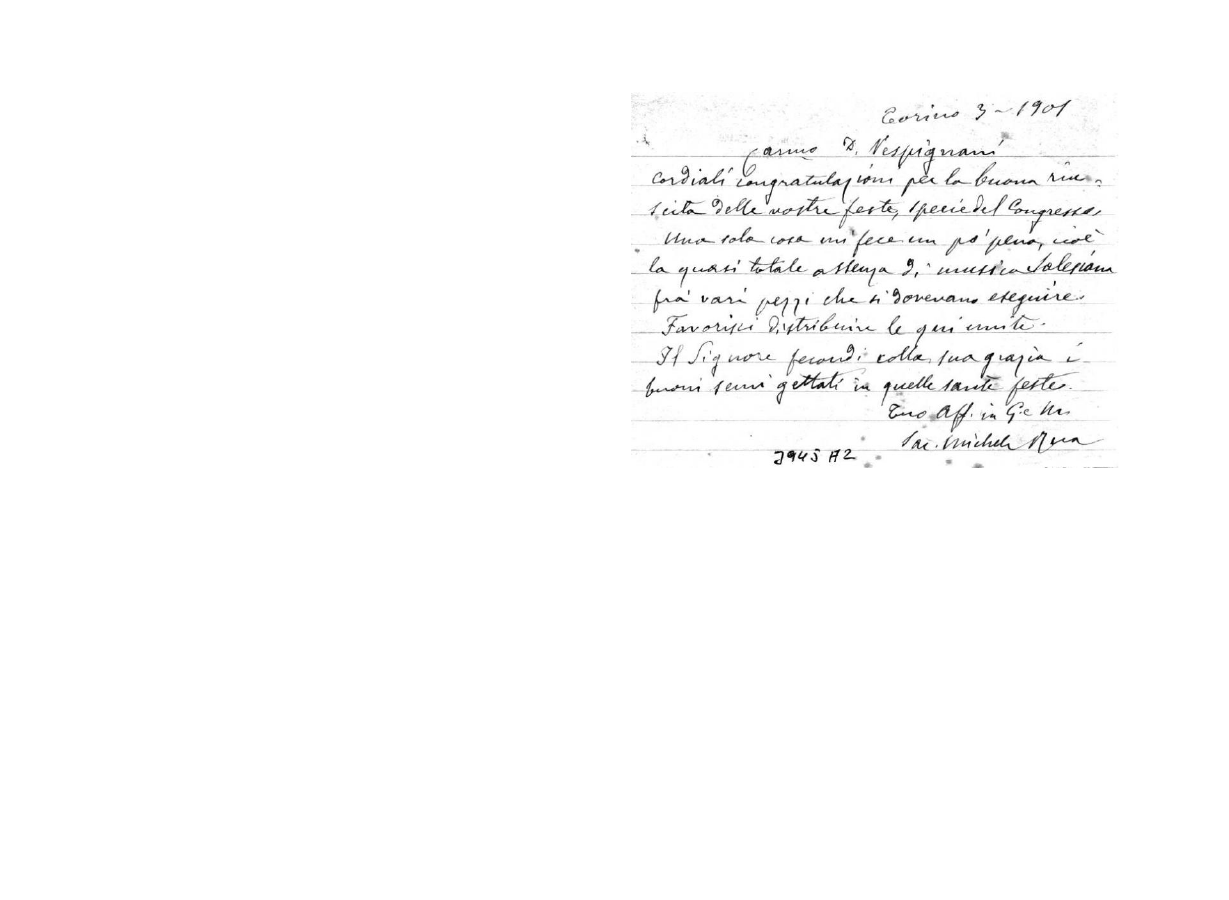 Torino 3 - 1901
Carmo D. Vespignani
Cordiali congratulazioni per la buona riu-
scita delle vostre feste, specie del Congresso,
Una sola cosa mi fece un po' pena, cioè
la quasi totale assenza di musica Salesiana
frà vari pezzi che si dovevano eseguire.
Favorisci distribuire le qui unite.
Il Signore fecondi colla sua grazia i
buoni semi gettati in quelle sante feste.
Tuo Aff. in G. e M.
Sac. Michele Rua
3945 A2